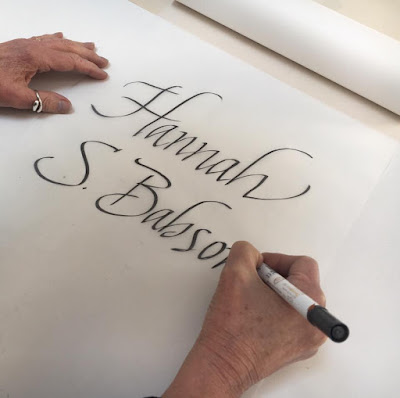 Hannah
S. Babson